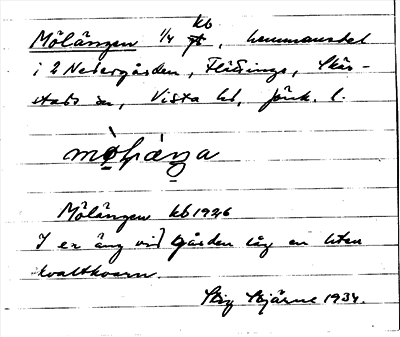 kb
Mölängen 1/4, hemmansdel
i 2 Nedergården, Flisinge, Skär-
stads sn, Vista hd, Jönk. l.
Mölängen kb 1926
I en äng vid gården låg en liten
kvaltkvarn.
Stig Stjärne 1934.